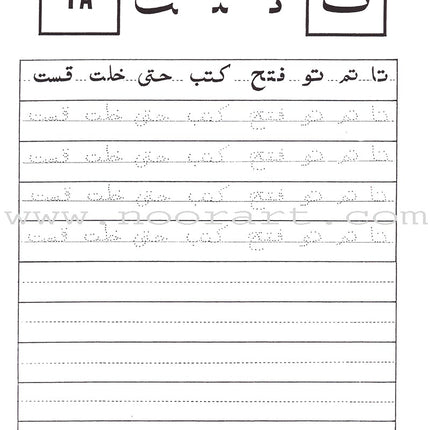 ت تـ ـتـ ـت ١٨
تا تم تو فتح كتب حتى خلت قست
تا تم تو فتح كتب حتى خلت قست
تا تم تو فتح كتب حتى خلت قست
تا تم تو فتح كتب حتى خلت قست
www.noorart.com
تا تم تو فتح كتب حتى خلت قست